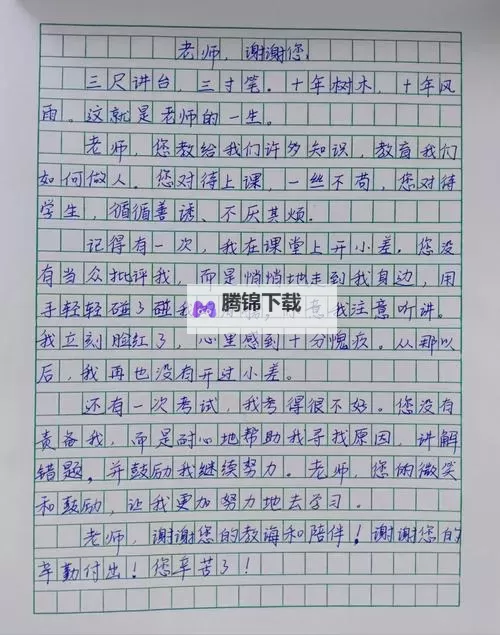 老师，谢谢您！
三尺讲台，三寸笔。十年树木，十年风
雨。这就是老师的一生。
老师，您教给我们许多知识，教育我们
如何做人。您对待上课，一丝不苟，您对待
学生，循循善诱、不厌其烦。
记得有一次，我在课堂上开小差。您没
有当众批评我，而是悄悄地走到我身边，用
手轻轻碰了碰我 意我注意听讲。
腾锦下载
我立刻脸红了，心里感到十分愧疚。从那以
后，我再也没有开过小差。
还有一次考试，我考得很不好。您没有
责备我，而是耐心地帮助我寻找原因，讲解
错题，并鼓励我继续努力。老师，您的微笑
和鼓励，让我更加努力地去学习。
老师，谢谢您的教诲和陪伴！谢谢您的
辛勤付出！您辛苦了！